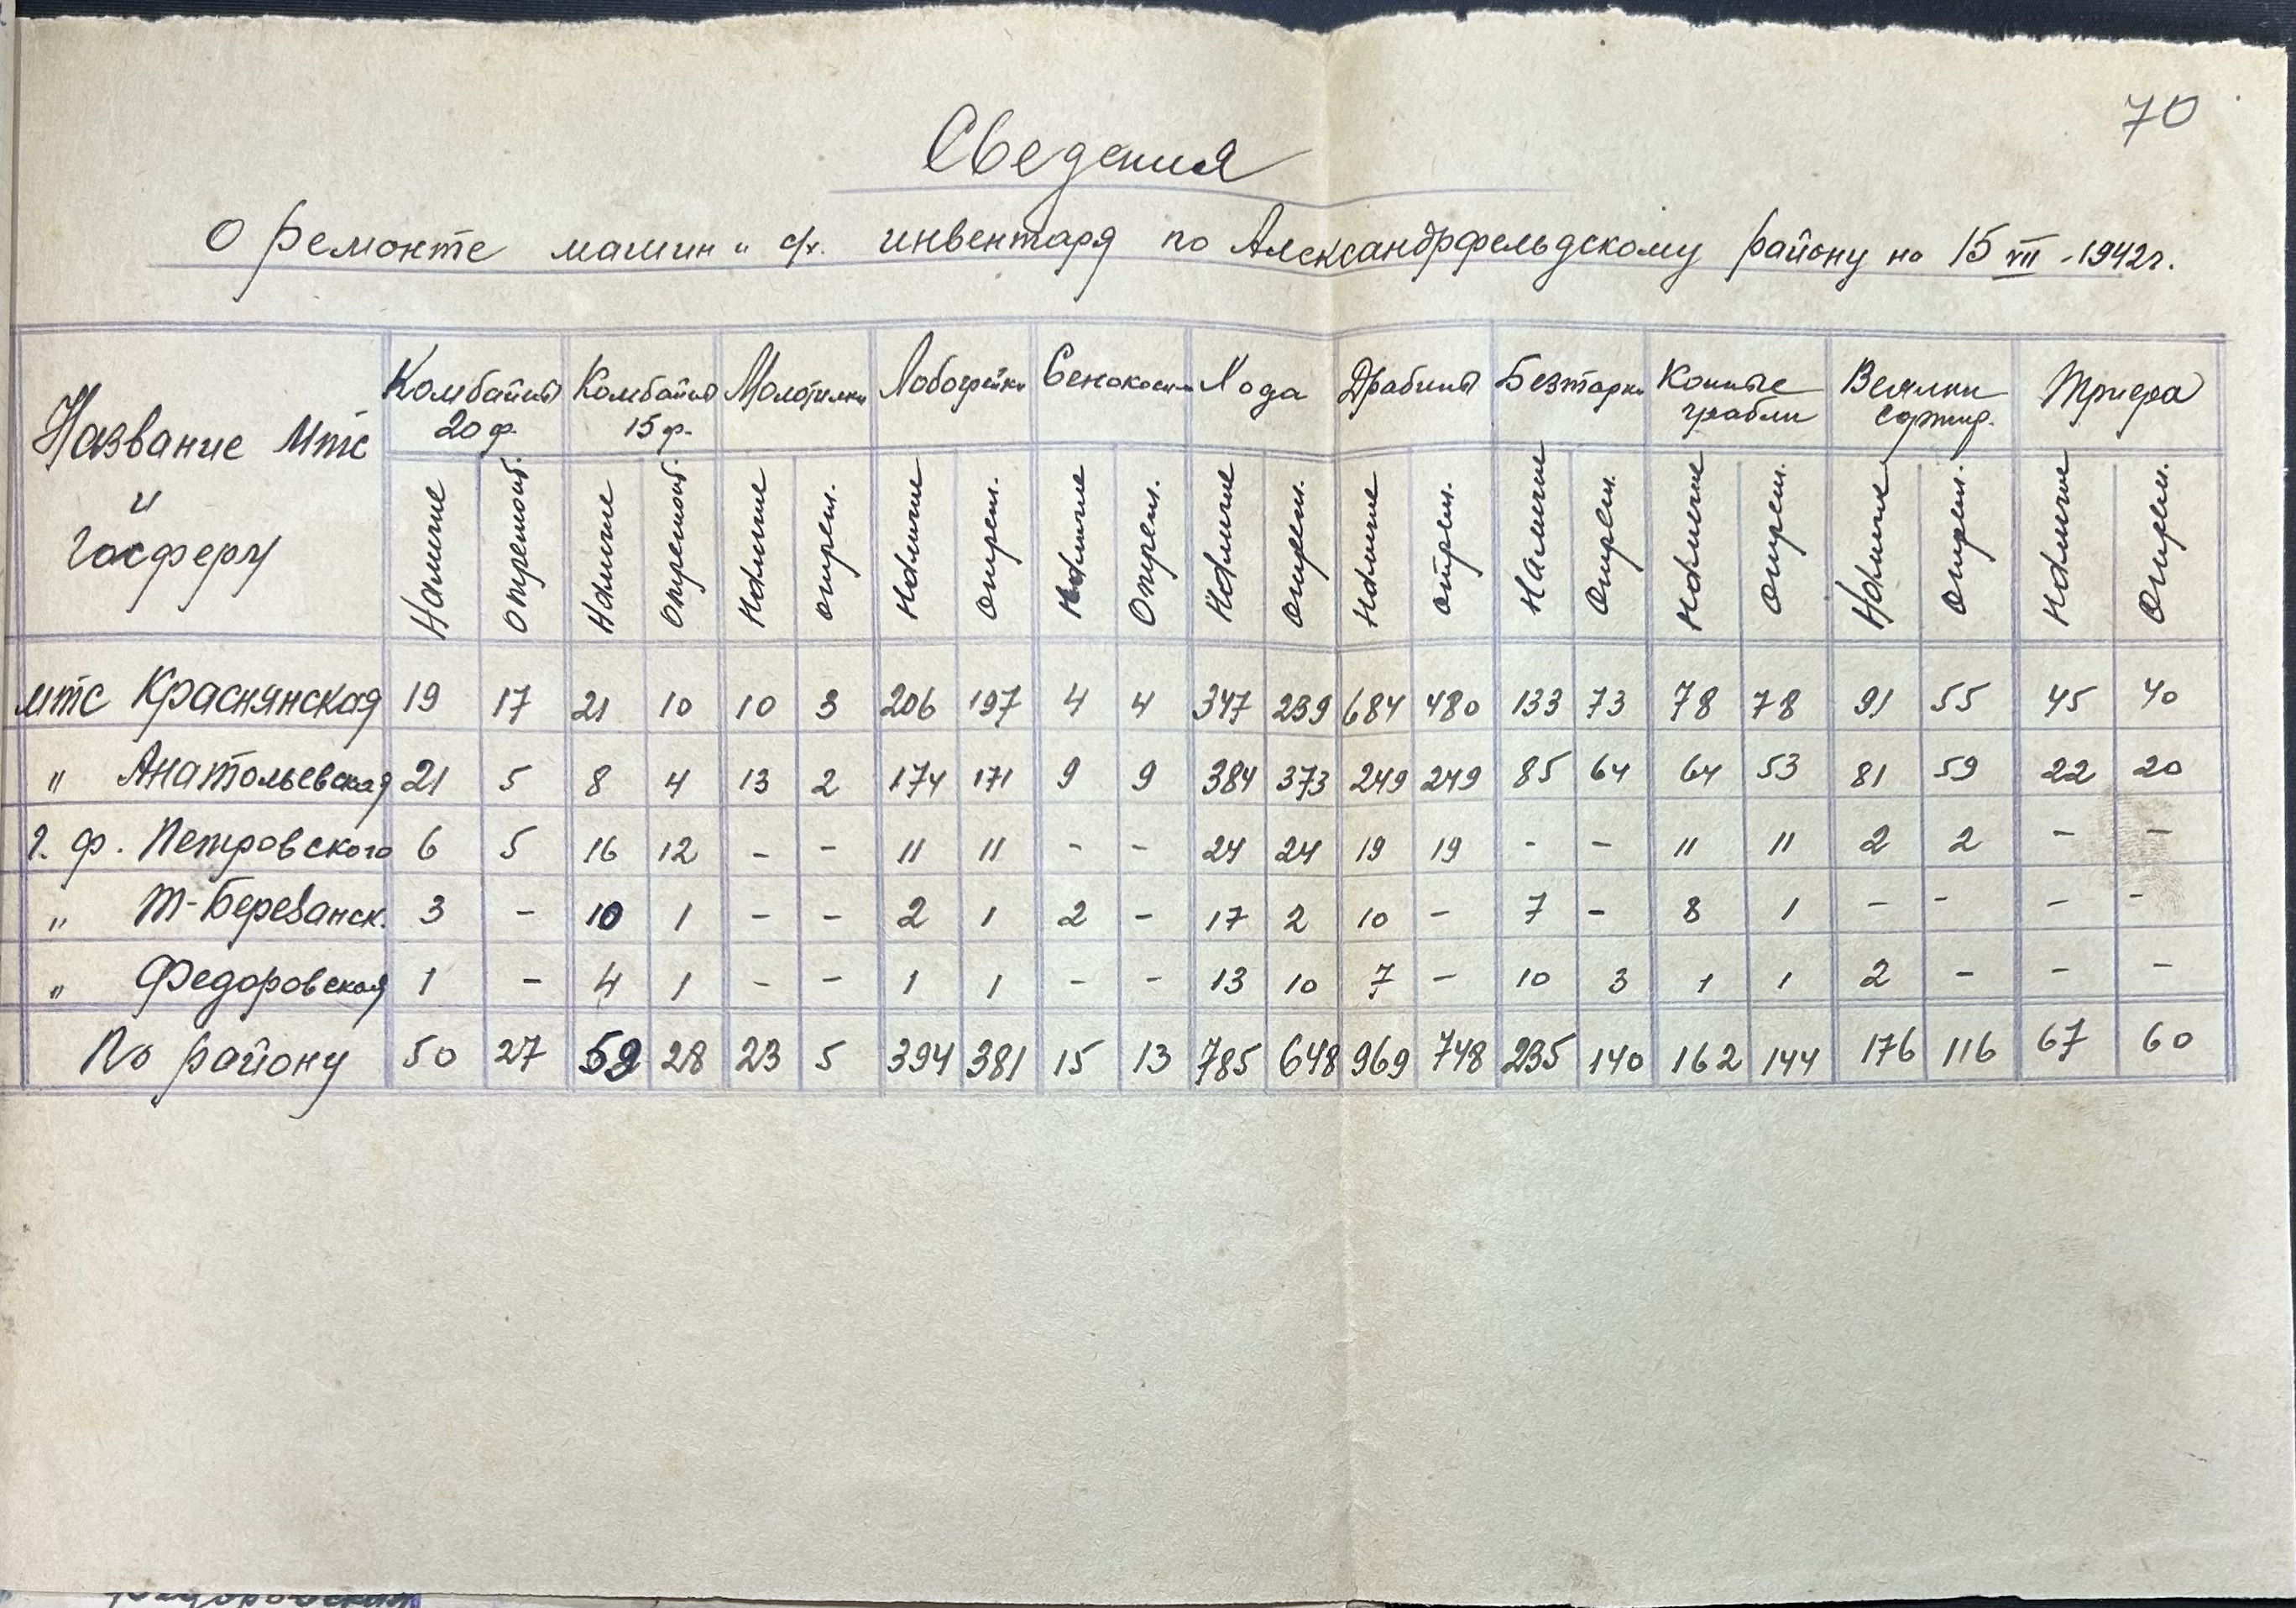 70
Сведения
О ремонте машин и с/х. инвентаря по Александрфельдскому району на 15 VII - 1942 г.
Название МТС и госферм Комбайны 20 ф. Комбайны 15 ф. Молотилки Лобогрейки Сенокосилки Хода Драбины Безтарки Конные грабли Веялки сортир. Триера
Наличие Отремонт. Наличие Отремонт. Наличие Отрем. Наличие Отрем. Наличие Отрем. Наличие Отрем. Наличие Отрем. Наличие Отрем. Наличие Отрем. Наличие Отрем. Наличие Отрем.
МТС Краснянская 19 17 21 10 10 3 206 197 4 4 347 239 684 480 133 73 78 78 91 55 45 40
" Анатольевская 21 5 8 4 13 2 174 171 9 9 384 373 249 249 85 64 64 53 81 59 22 20
Г. ф. Петровского 6 5 16 12 - - 11 11 - - 24 24 19 19 - - 11 11 2 2 - -
" Т-Березанск. 3 - 10 1 - - 2 1 2 - 17 2 10 - 7 - 8 1 - - - -
" Федоровская 1 - 4 1 - - 1 1 - - 13 10 7 - 10 3 1 1 2 - - -
По району 50 27 59 28 23 5 394 381 15 13 785 648 969 748 235 140 162 144 176 116 67 60